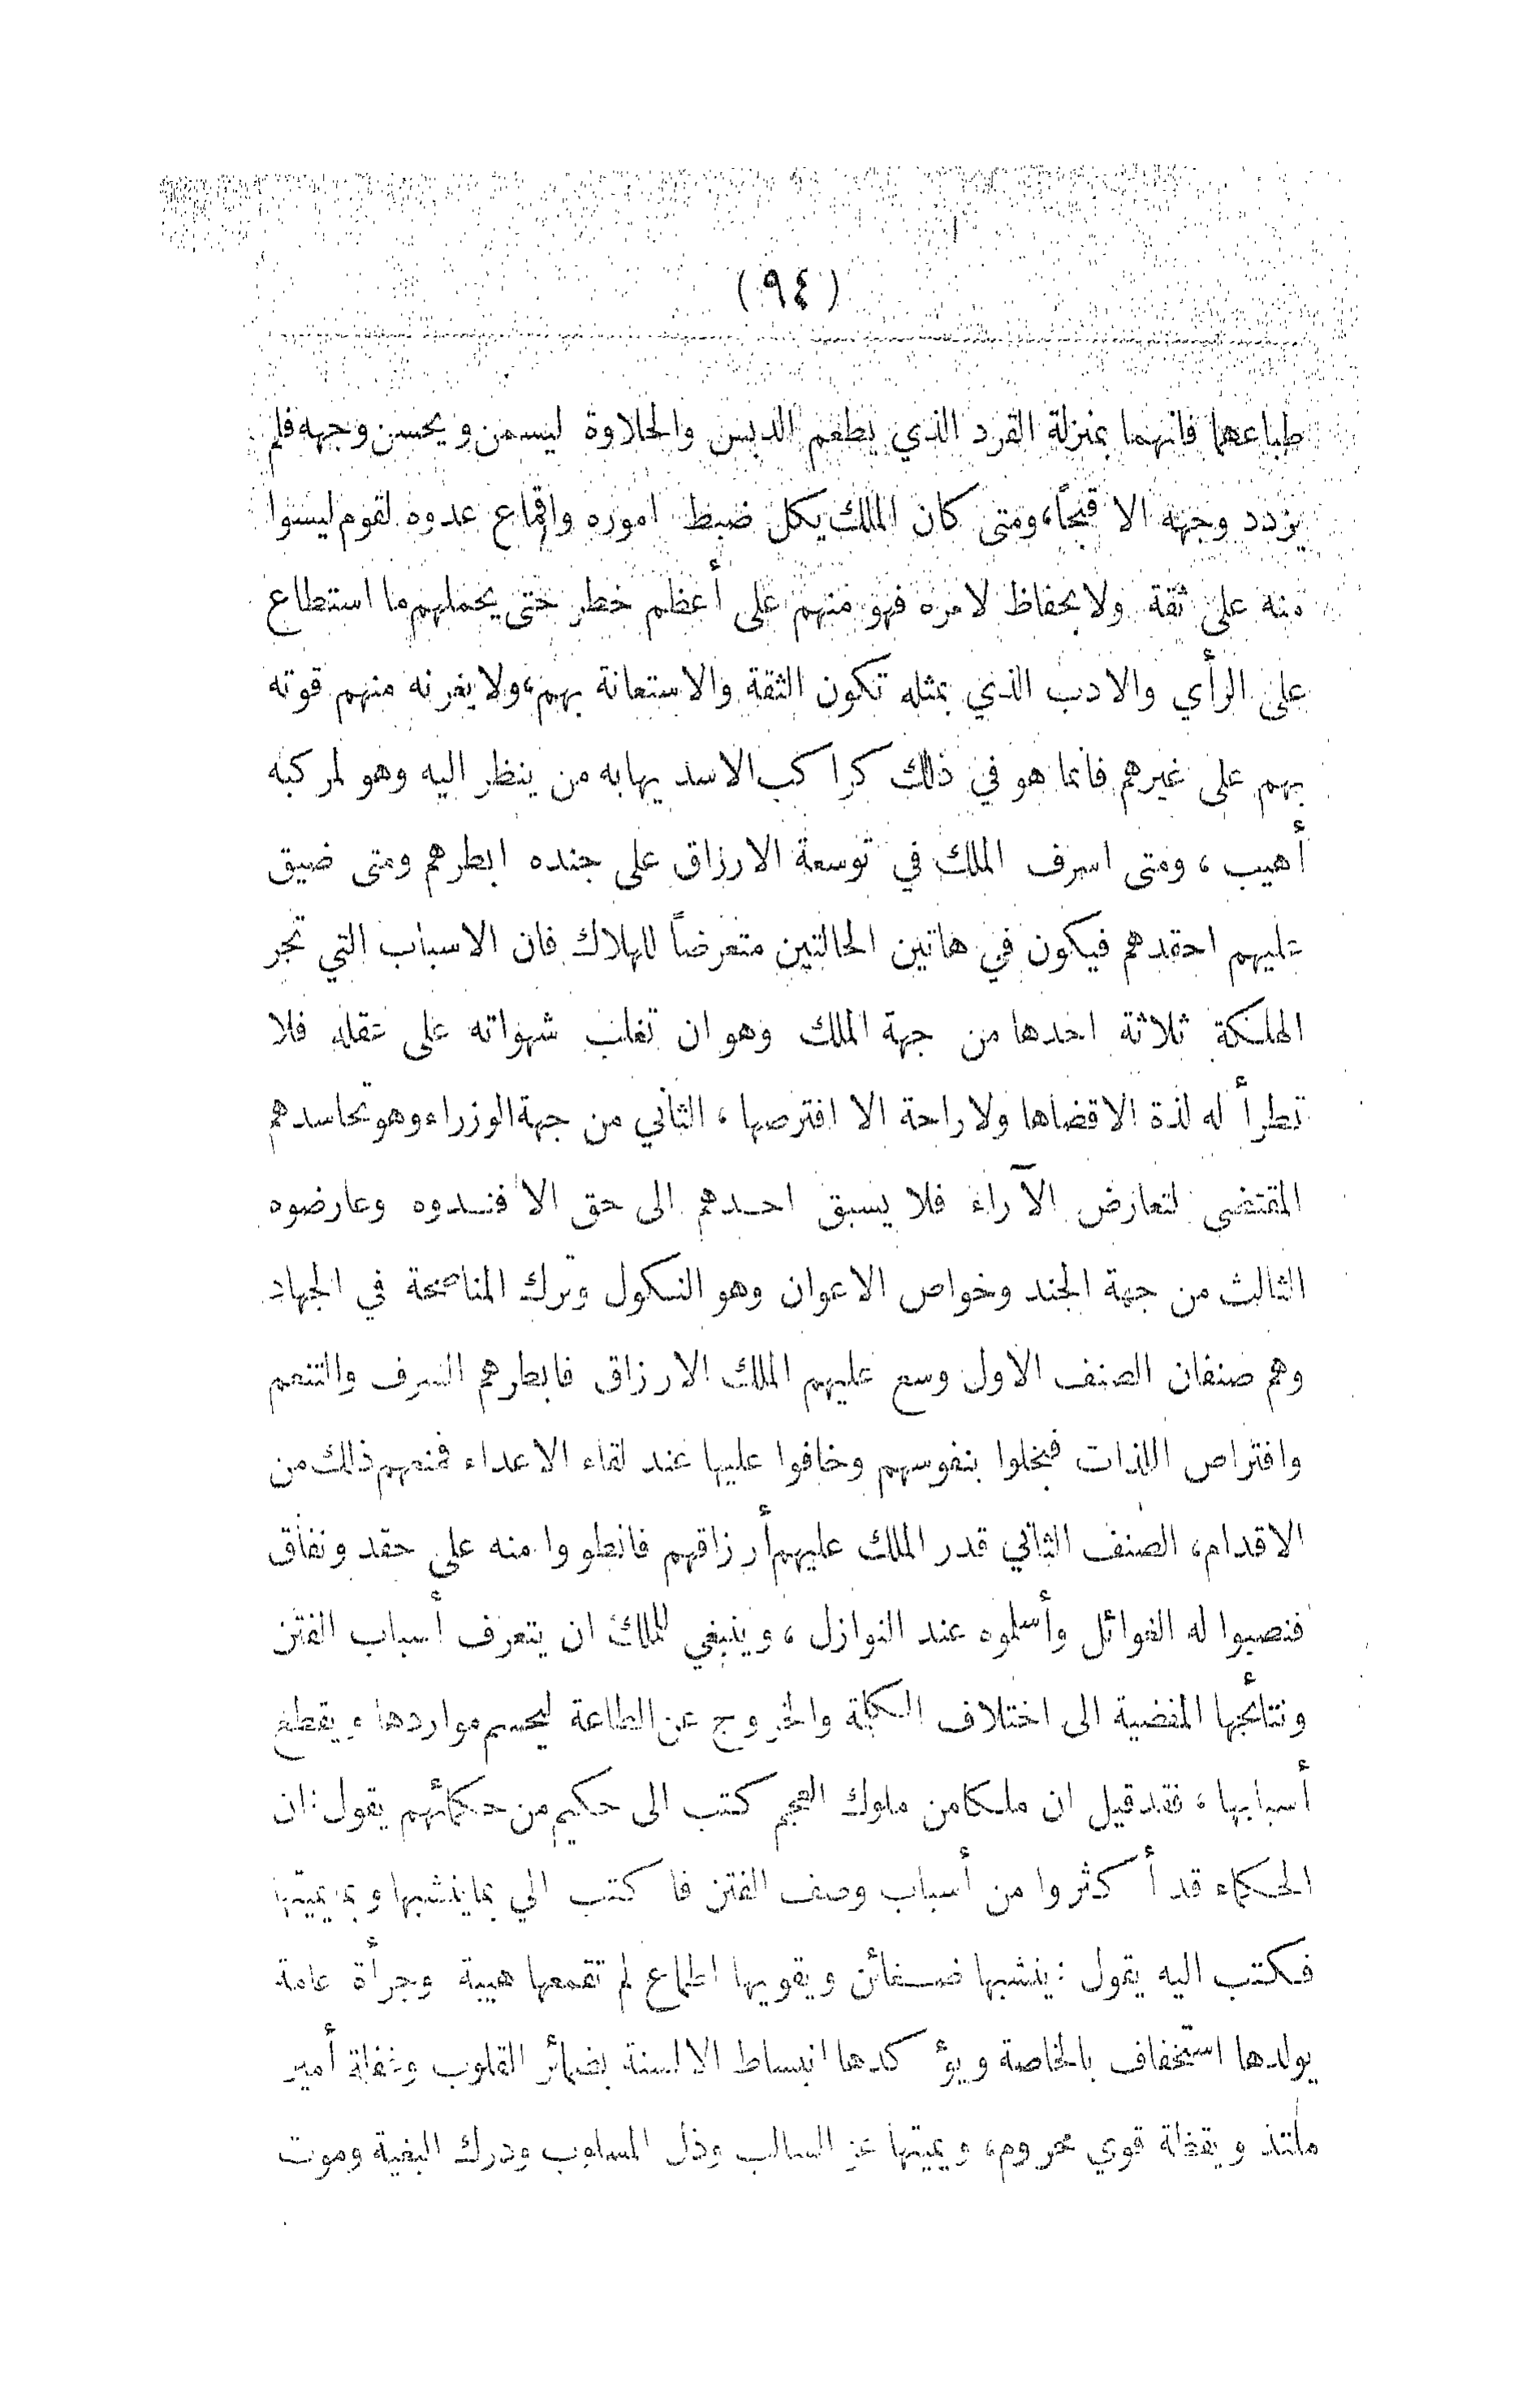 (٩٤)
طباعهما فانهما بمنزلة القرد الذي يطعم الدبس والحلاوة ليسمن ويحسن وجهه فلم
يزدد وجهه الا قبحاً، ومتى كان الملك يكل ضبط اموره واقماع عدوه لقوم ليسوا
منه على ثقة ولا بحفاظ لامره فهو منهم على أعظم خطر حتى يحملهم ما استطاع
على الرأي والادب الذي بمثله تكون الثقة والاستعانة بهم، ولا يغرنه منهم قوته
بهم على غيرهم فانما هو في ذلك كراكب الاسد يهابه من ينظر اليه وهو لمركبه
أهيب ، ومتى اسرف الملك في توسعة الارزاق على جنده ابطرهم ومتى ضيق
عليهم احقدهم فيكون في هاتين الحالتين متعرضاً للهلاك فان الاسباب التي تجر
الهلكة ثلاثة احدها من جهة الملك وهو ان تغلب شهواته على عقله فلا
تطرأ له لذة الا قضاها ولا راحة الا افترصها ، الثاني من جهة الوزراء وهو تحاسدهم
المقتضي لتعارض الآراء فلا يسبق احدهم الى حق الا فندوه وعارضوه
الثالث من جهة الجند وخواص الاعوان وهو النكول وترك المناصحة في الجهاد
وهم صنفان الصنف الاول وسع عليهم الملك الارزاق فابطرهم السرف والتنعم
وافتراص اللذات فبخلوا بنفوسهم وخافوا عليها عند لقاء الاعداء فمنعهم ذلك من
الاقدام، الصنف الثاني قدر الملك عليهم أرزاقهم فانطووا منه على حقد ونفاق
فنصبوا له الغوائل وأسلموه عند النوازل ، وينبغي للملك ان يتعرف أسباب الفتن
ونتائجها المفضية الى اختلاف الكلمة والخروج عن الطاعة ليحسم مواردها ويقطع
أسبابها ، فقد قيل ان ملكا من ملوك العجم كتب الى حكيم من حكمائهم يقول : ان
الحكماء قد أكثروا من أسباب وصف الفتن فاكتب الي بما ينشبها وبما يميتها
فكتب اليه يقول : ينشبها ضغائن ويقويها اطماع لم تقمعها هيبة وجرأة عامة
يولدها استخفاف بالخاصة ويؤكدها انبساط الالسنة بضمائر القلوب وغفلة أمير
ملتذ ويقظة قوي محروم، ويميتها عز السالب وذل المسلوب ودرك البغية وموت